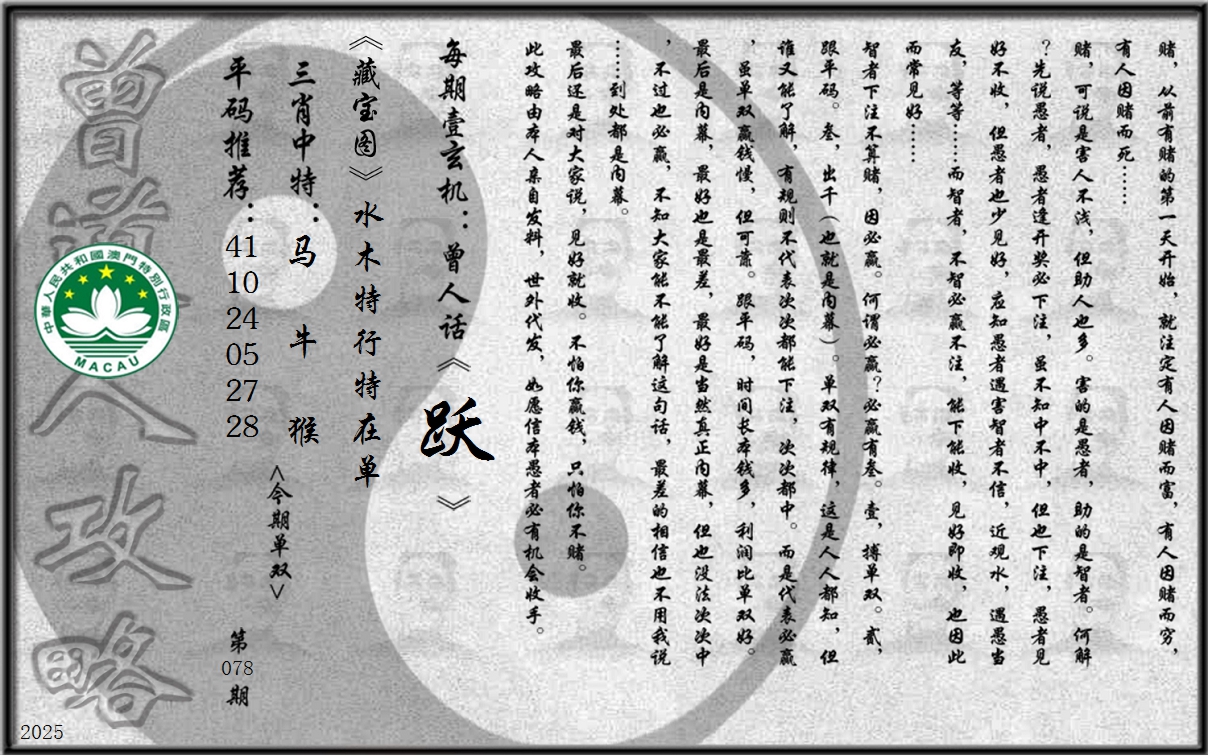 赌，从前有赌的第一天开始，就注定有人因赌而富，有人因赌而穷，
有人因赌而死……
赌，可说是害人不浅，但助人也多。害的是愚者，助的是智者。何解
？先说愚者，愚者逢开奖必下注，虽不知中不中，但也下注，愚者见
好不收，但愚者也少见好，应知愚者遇害智者不信，近观水，遇愚当
友，等等……而智者，不智必赢不注，能下能收，见好即收，也因此
而常见好……
智者下注不算赌，因必赢。何谓必赢？必赢有叁。壹，搏单双。贰，
跟平码。叁，出千（也就是内幕）。单双有规律，这是人人都知，但
谁又能了解，有规则不代表次次都能下注，次次都中。而是代表必赢
，虽单双赢钱慢，但可靠。跟平码，时间长本钱多，利润比单双好。
最后是内幕，最好也是最差，最好是当然真正内幕，但也没法次次中
，不过也必赢，不知大家能不能了解这句话，最差的相信也不用我说
……到处都是内幕。
最后还是对大家说，见好就收。不怕你赢钱，只怕你不赌。
此攻略由本人亲自发料，世外代发，如愿信本愚者必有机会收手。
每期壹玄机：曾人话《跃》
《藏宝图》水木特行特在单
三肖中特：马 牛 猴
<今期单双>
平码推荐：41 10 24 05 27 28
第078期
曾道人攻略
中華人民共和國澳門特別行政區
MACAU
2025